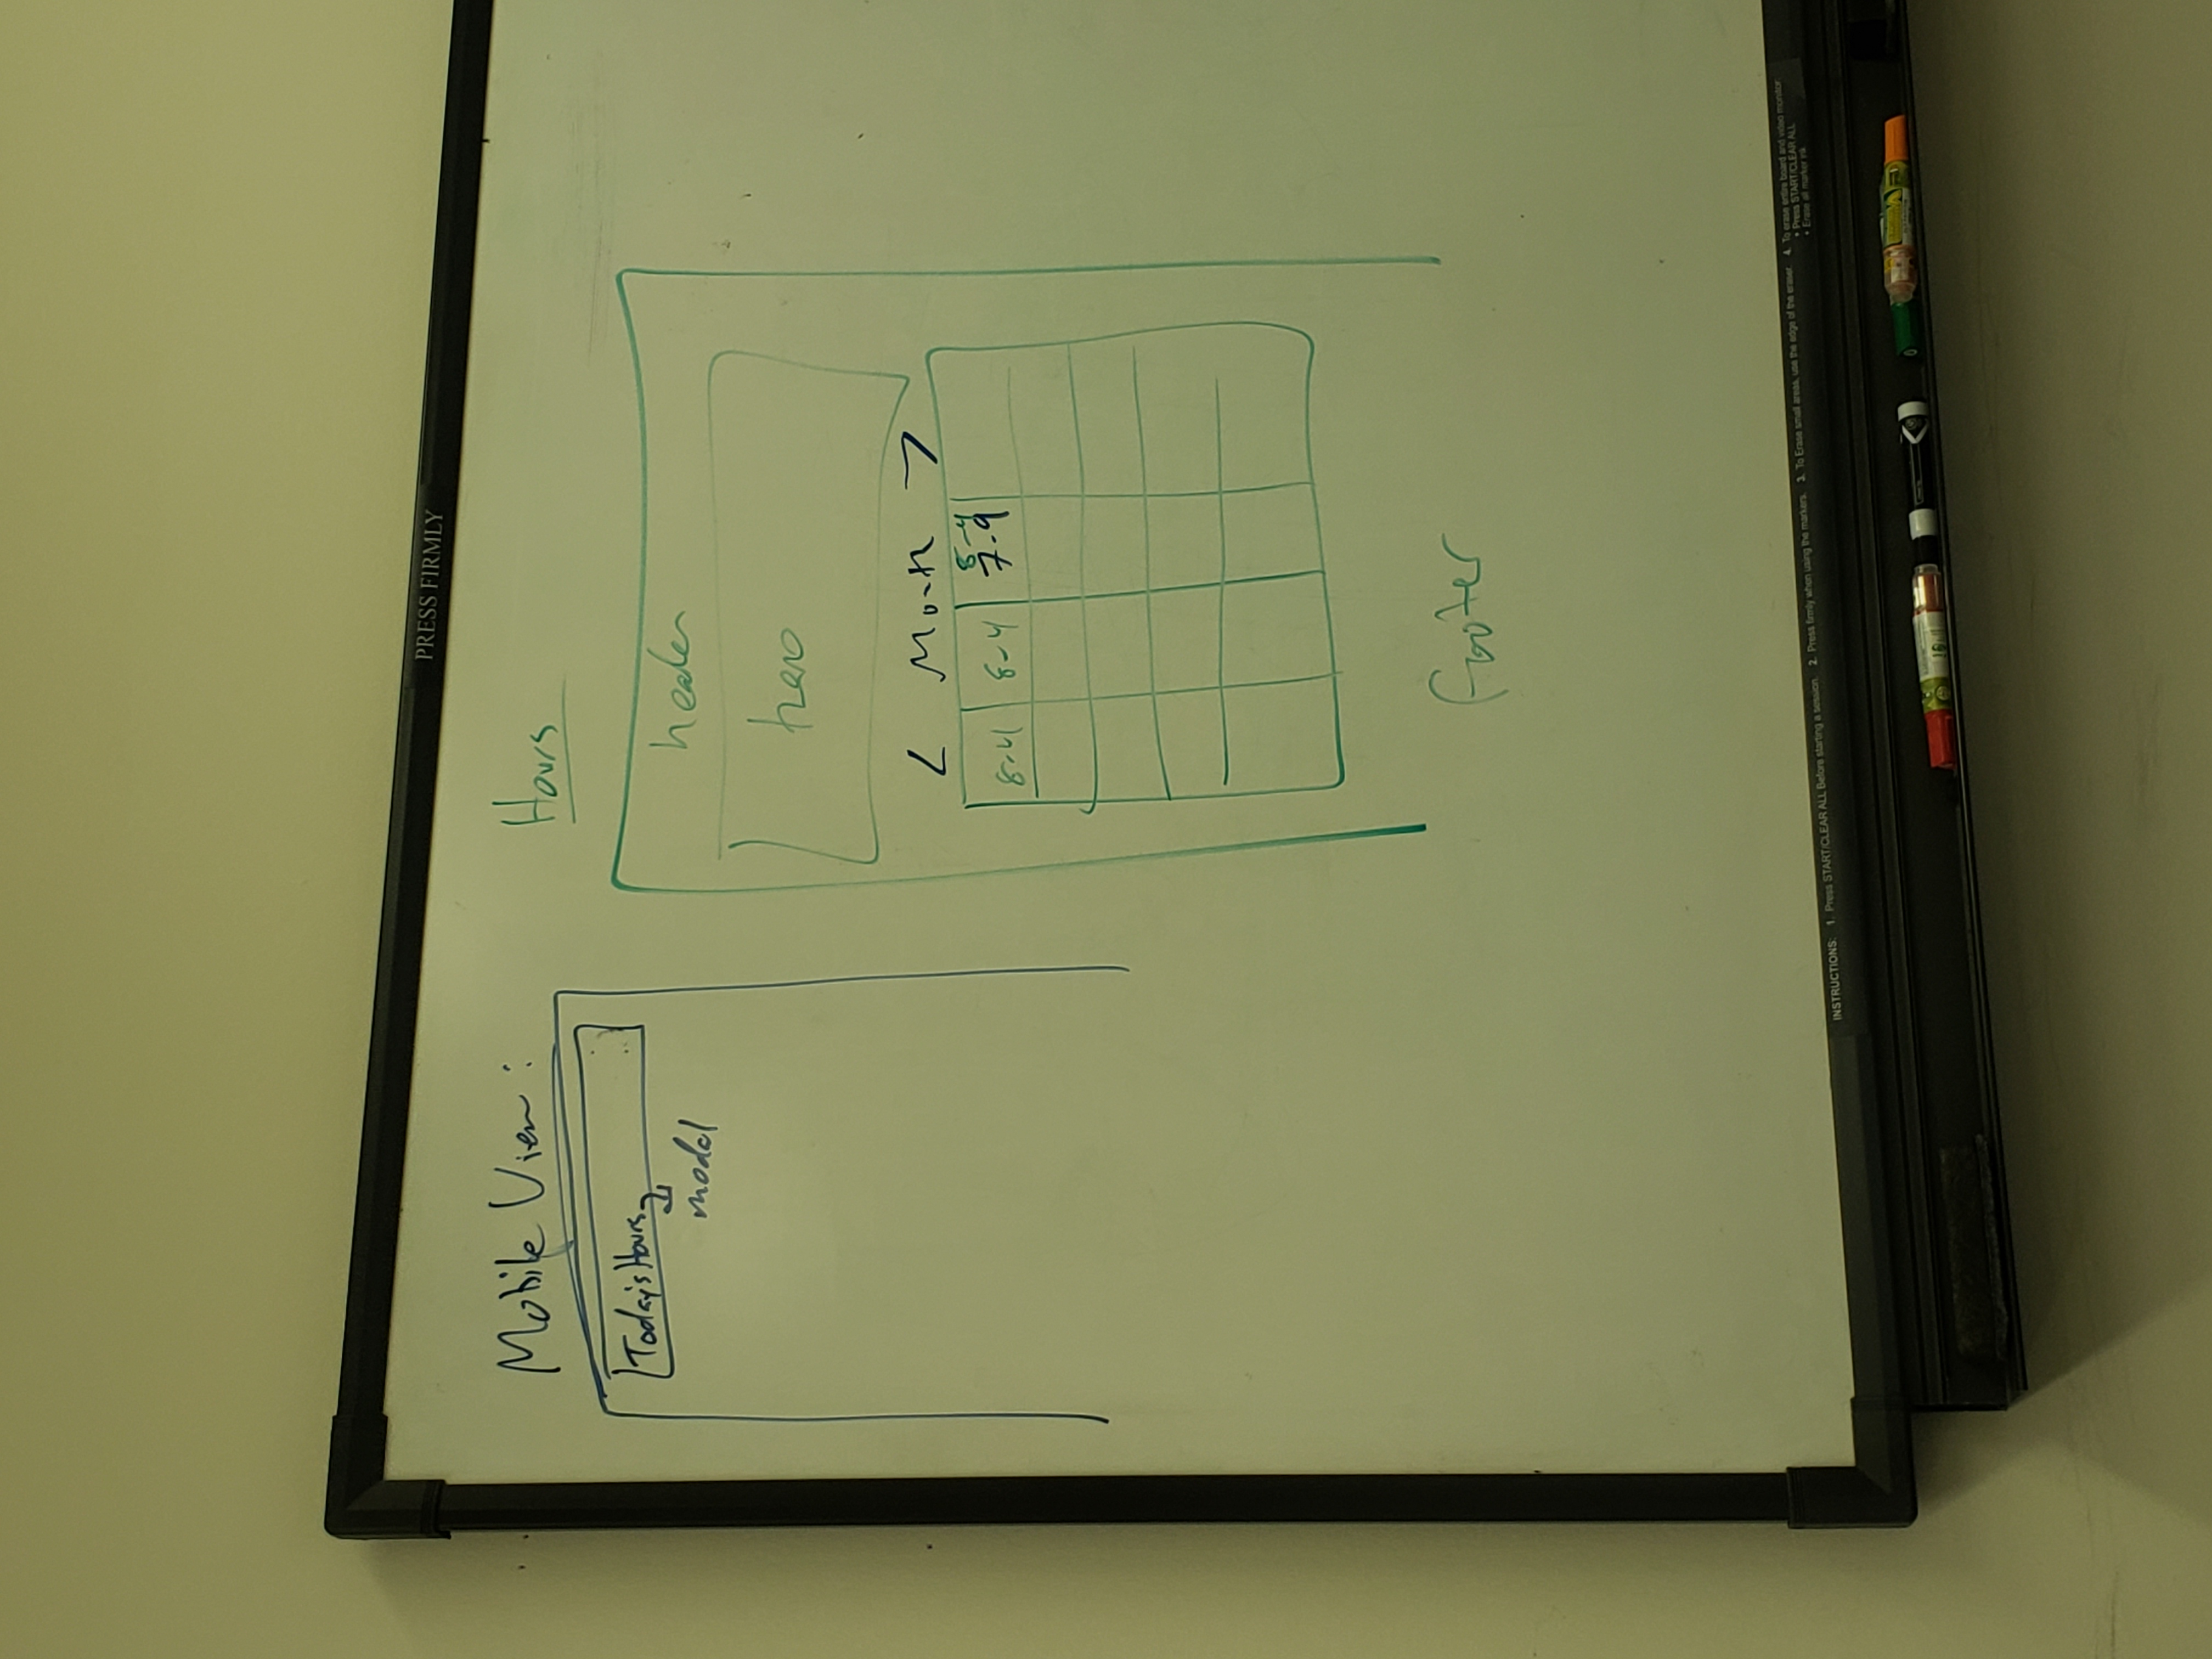 PRESS FIRMLY
Mobile View:
Today's Hours
modal
Hours
header
hero
< Month >
8-4 8-4 8-4
7-9
footer
INSTRUCTIONS: 1. Press START/CLEAR ALL Before starting a session. 2. Press firmly when using the markers. 3. To Erase small areas, use the edge of the eraser. 4. To erase entire board and video monitor:
• Press START/CLEAR ALL
• Erase all marker ink